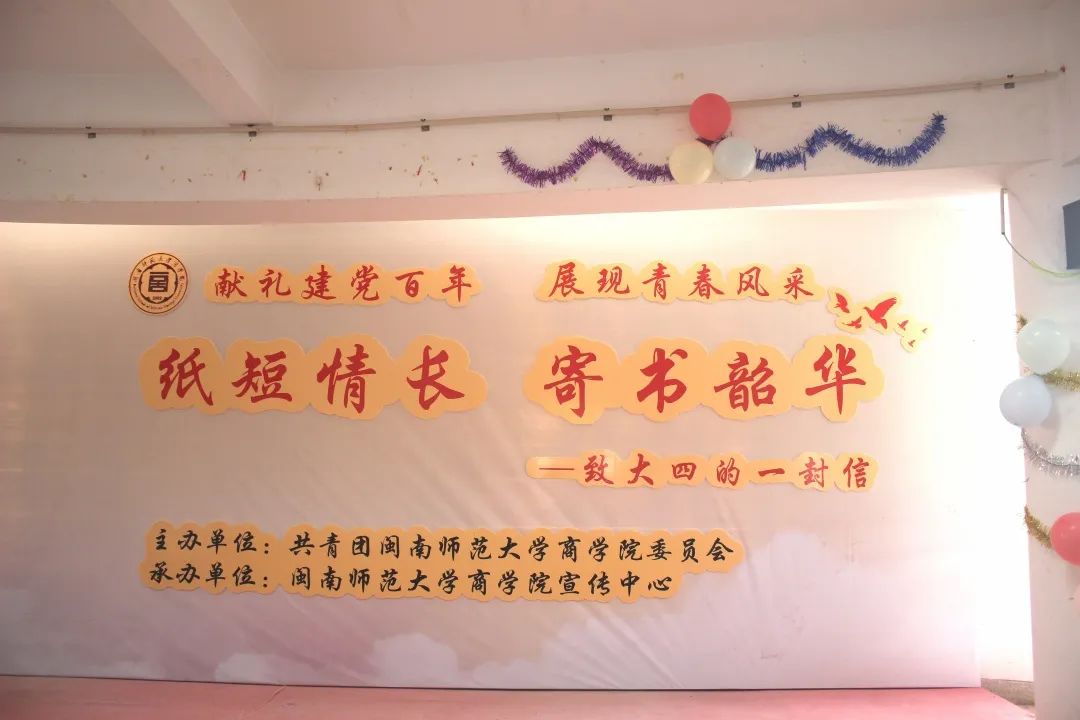 献礼建党百年 展现青春风采
纸短情长 寄书韶华
—致大四的一封信
主办单位：共青团闽南师范大学商学院委员会
承办单位：闽南师范大学商学院宣传中心